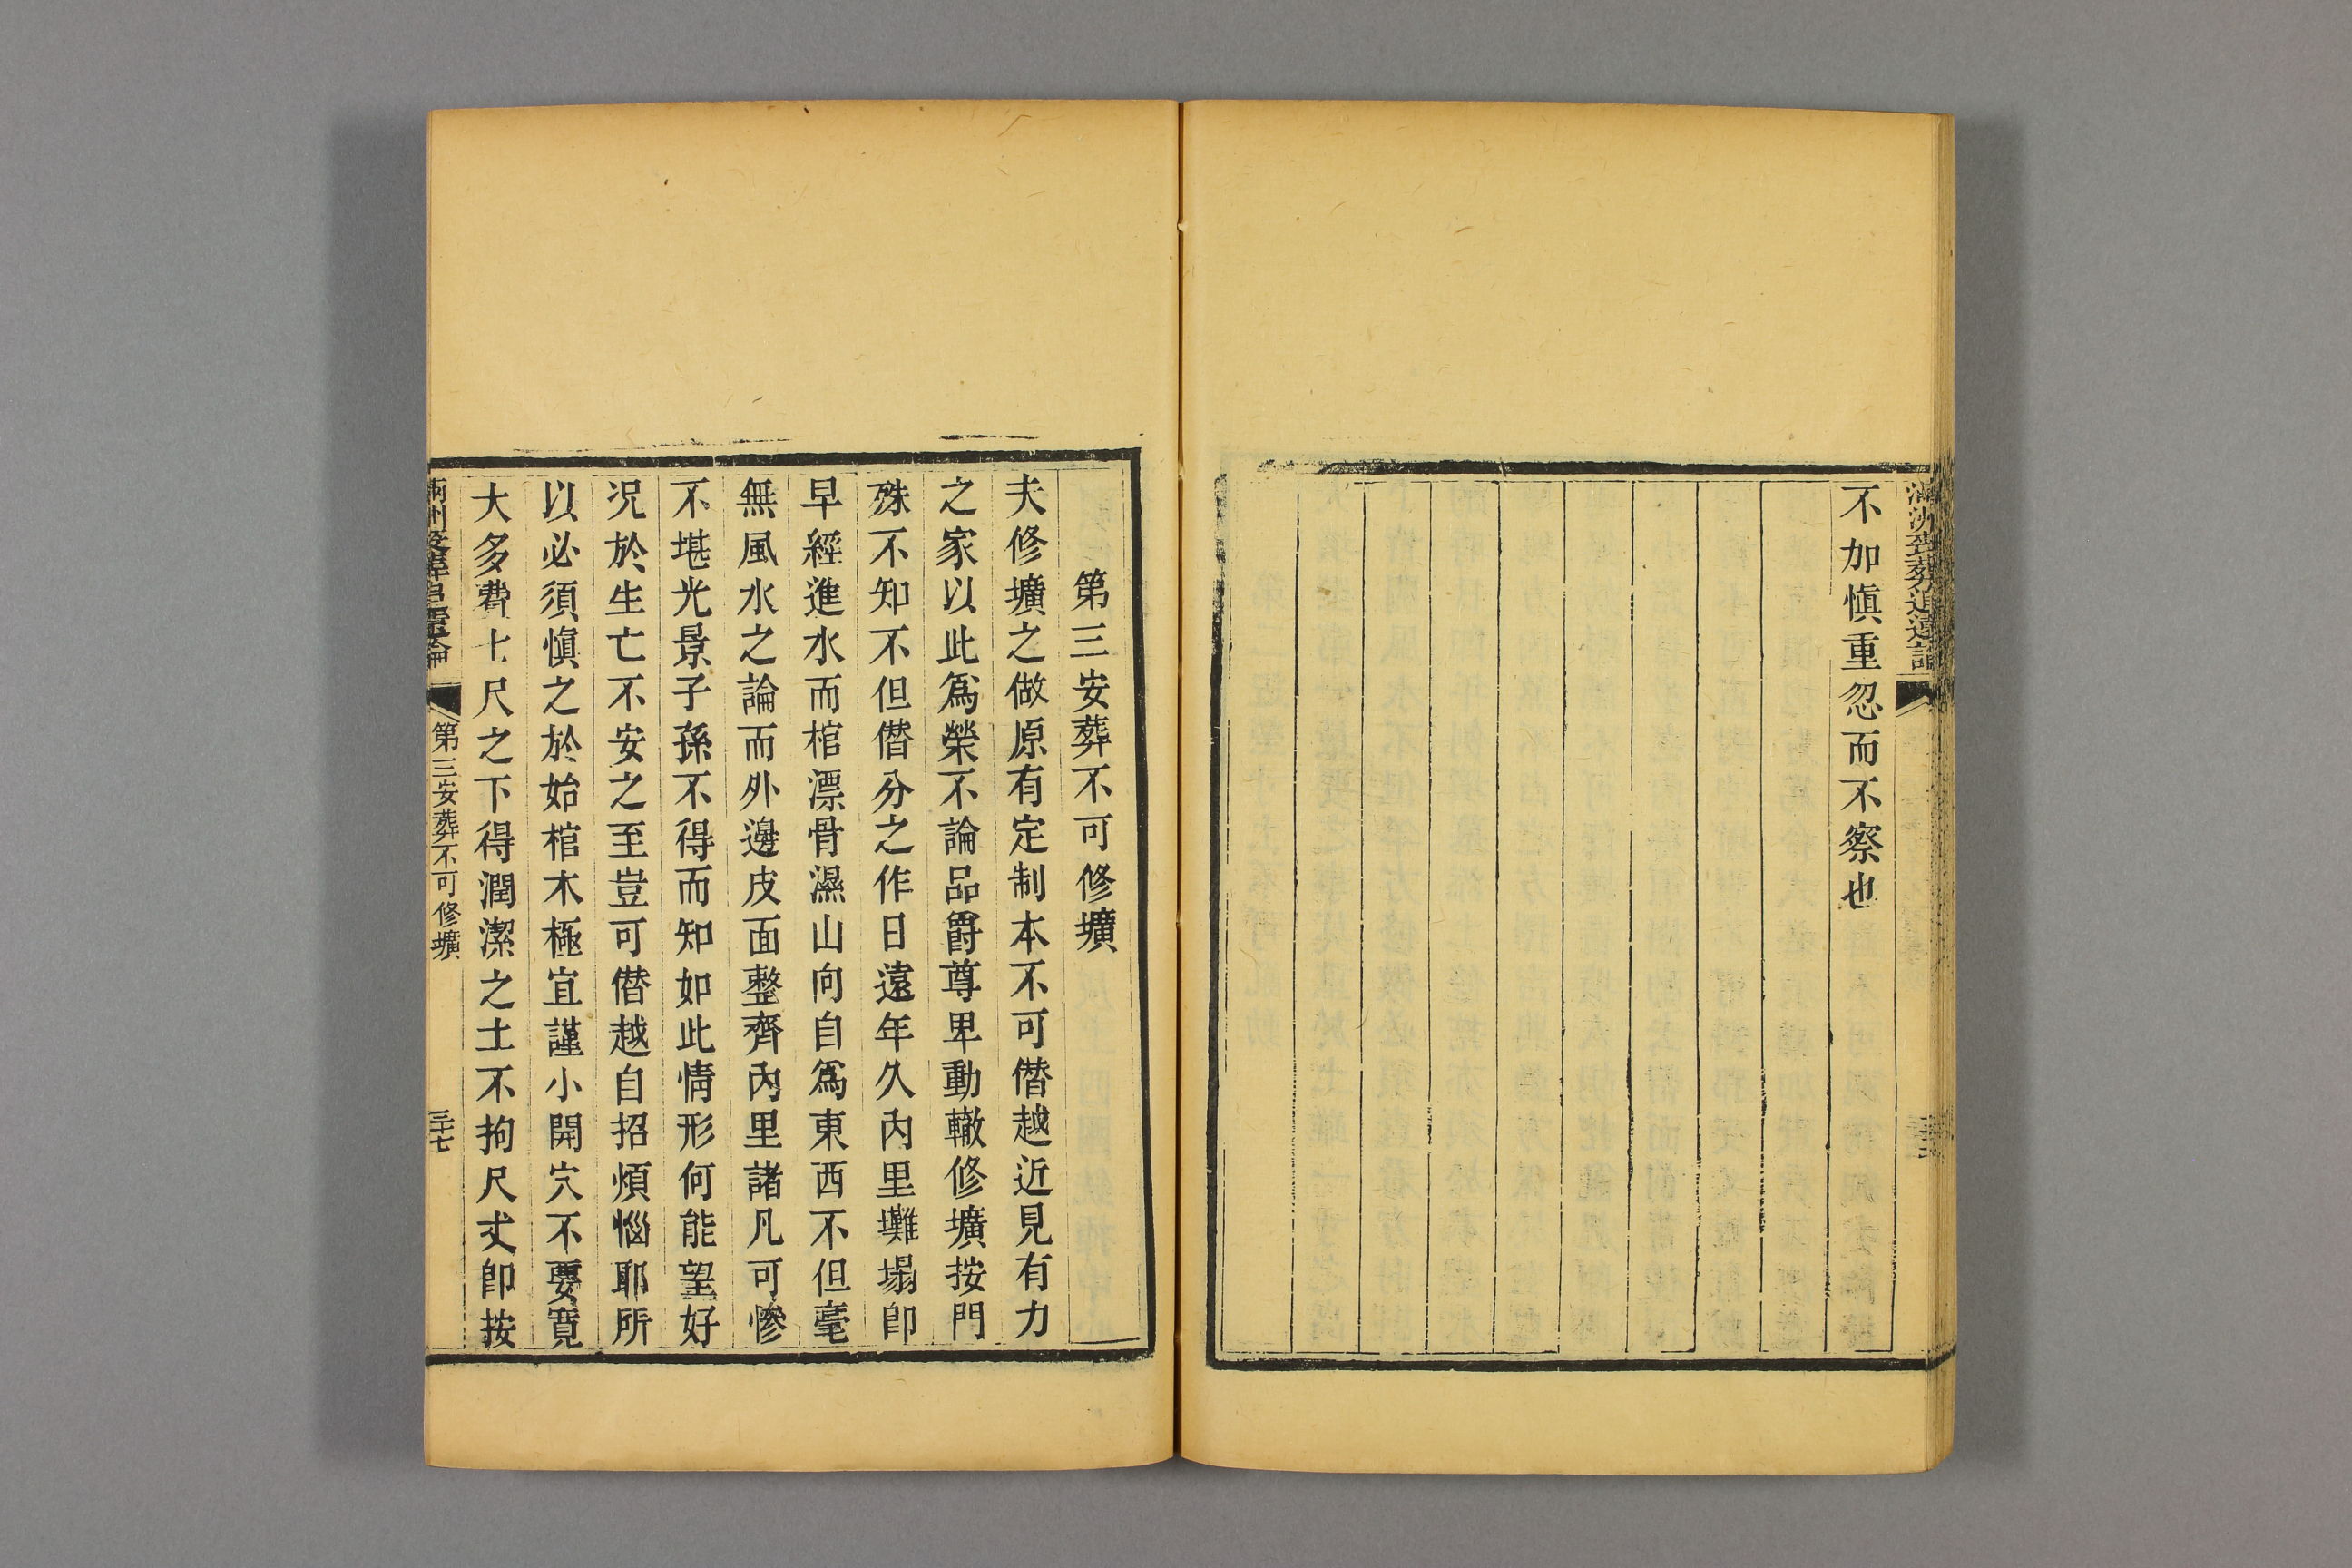 不加愼重忍而不察也
第三安葬不可修壙
夫修壙之做原有定制本不可僭越近見有力
之家以此爲榮不論品爵尊卑動輙修壙按門
殊不知不但僭分之作日遠年久內里壩塌卽
早經進水而棺漂骨濕山向自爲東西不但毫
無風水之論而外邊皮面整齊內里諸凡可慘
不堪光景子孫不得而知如此情形何能望好
况於生亡不安之至豈可僭越自招煩惱耶所
以必須愼之於始棺木極宜謹小開穴不要寬
大多費七尺之下得潤潔之土不拘尺丈卽按
第三安葬不可修壙
三十七